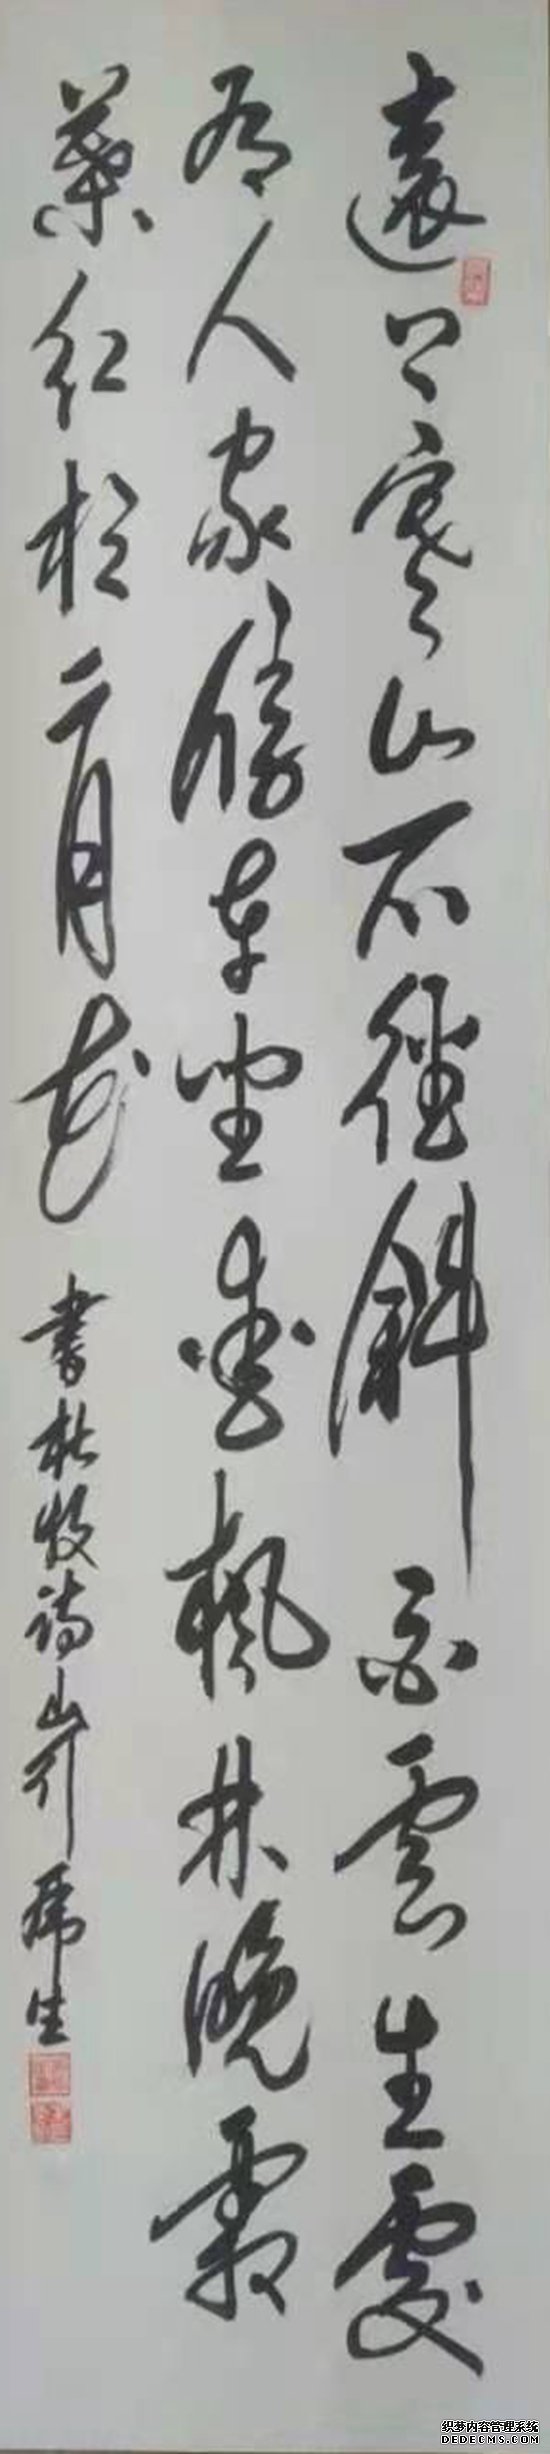 遠上寒山石徑斜白雲生處
有人家停車坐愛楓林晚霜
葉紅於二月花 書杜牧詩山行 生
织梦内容管理系统
DEDECMS.COM